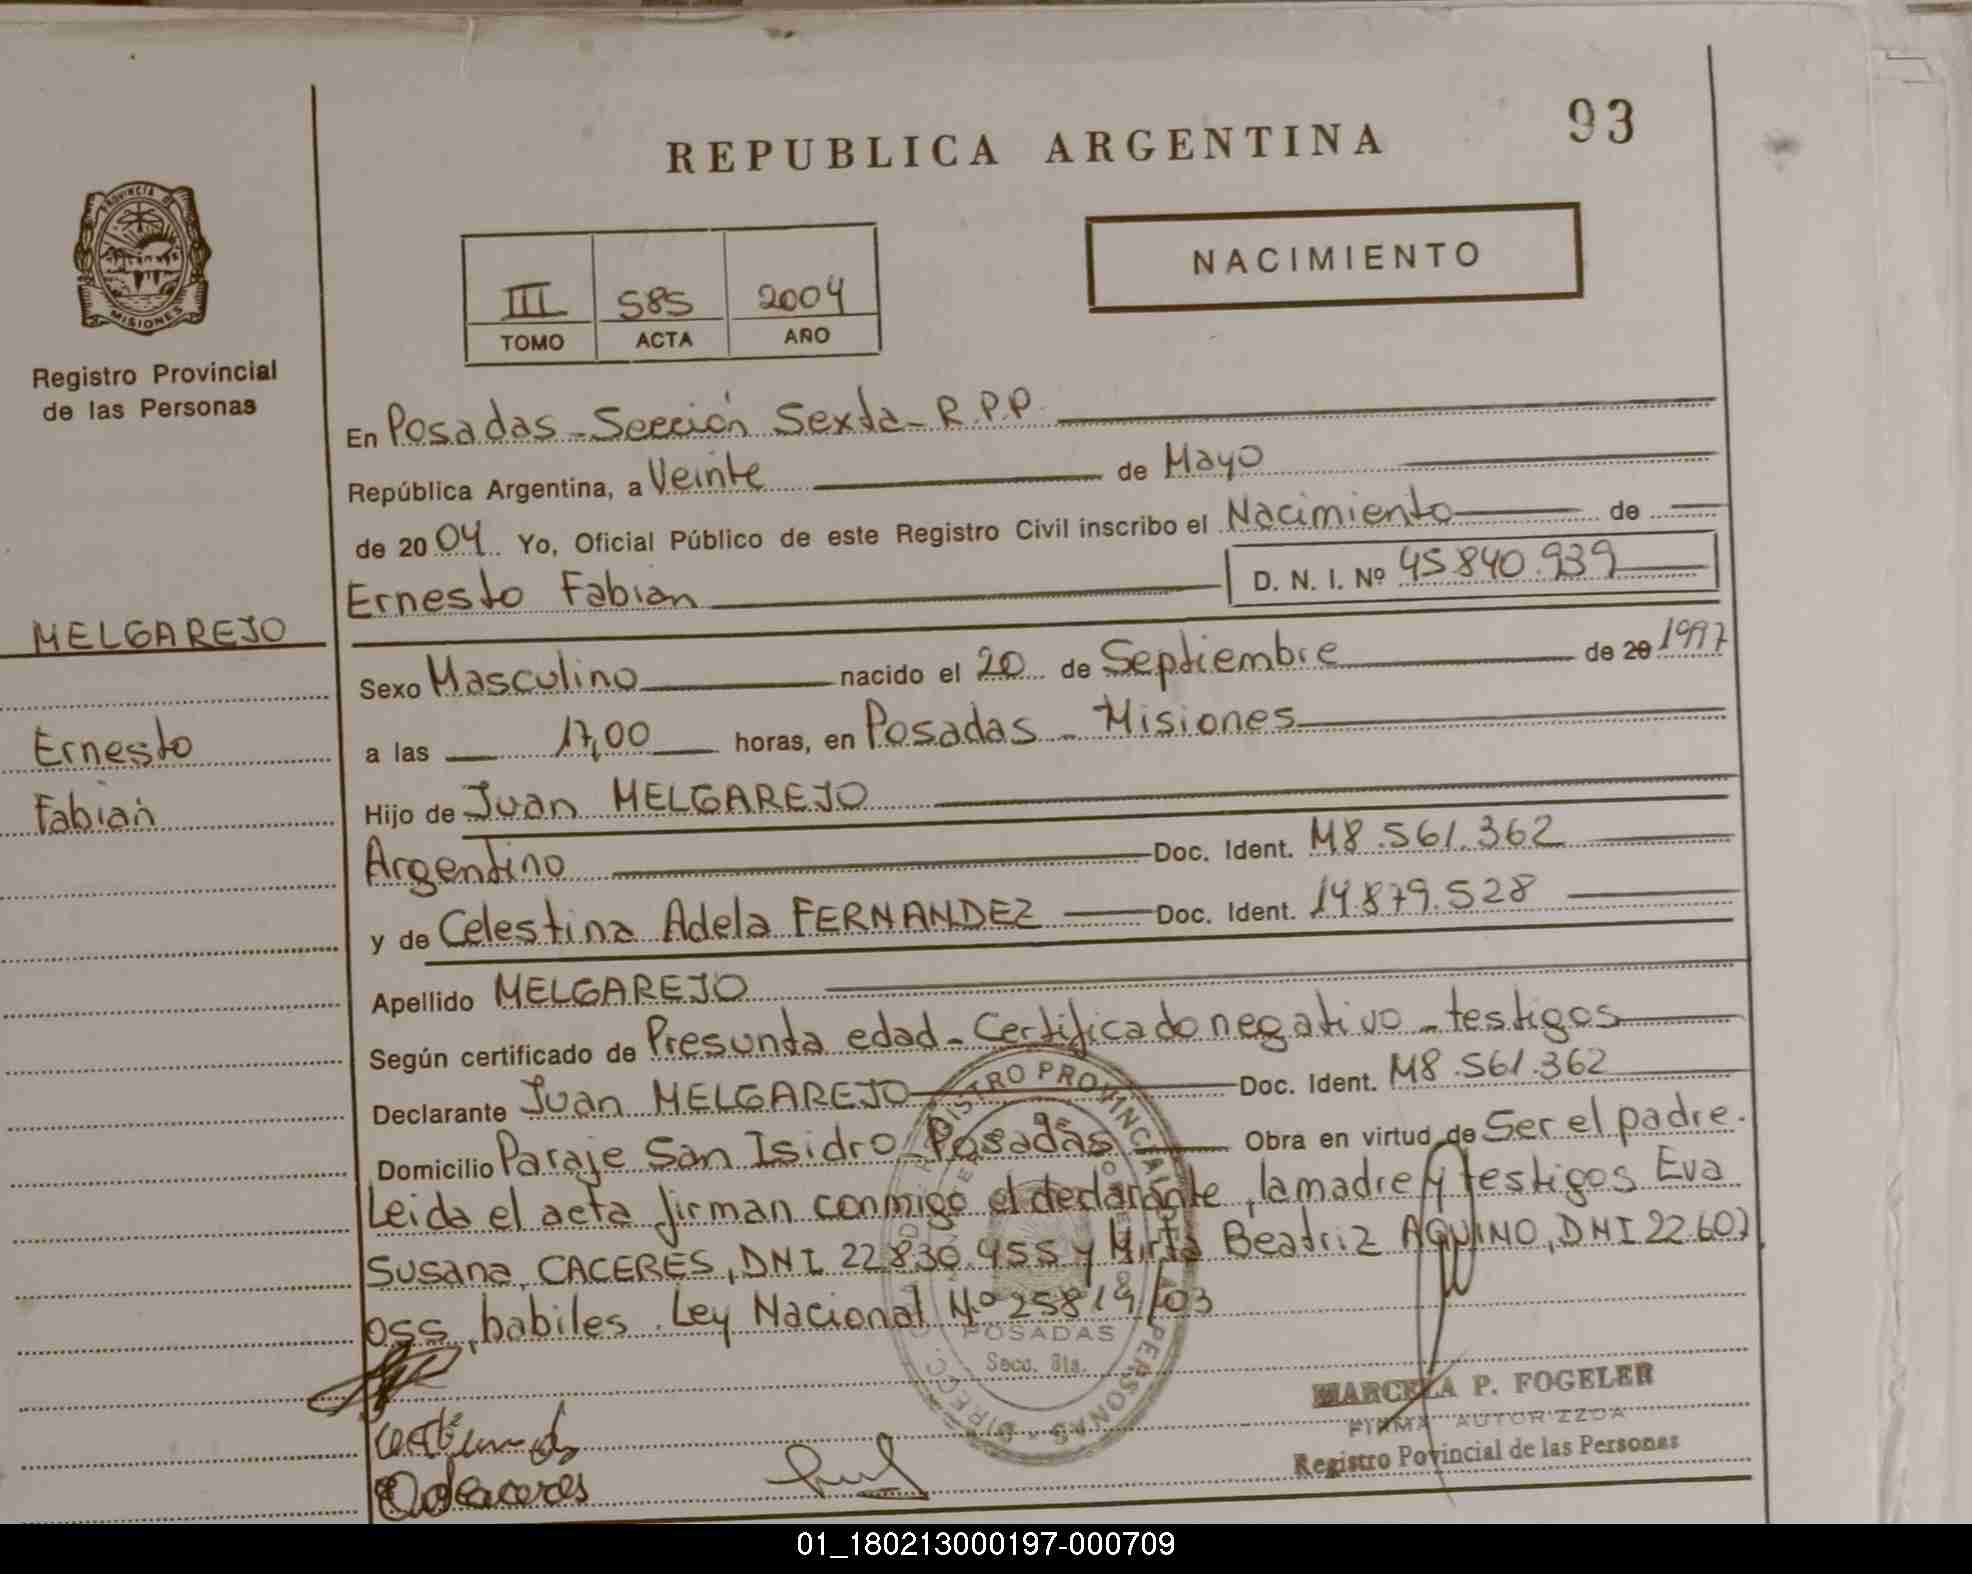 REPUBLICA ARGENTINA
93
PROVINCIA DE
MISIONES
Registro Provincial
de las Personas
NACIMIENTO
III 585 2004
TOMO ACTA AÑO
En Posadas - Sección Sexta - R.P.P.
República Argentina, a Veinte de Mayo
de 2004 Yo, Oficial Público de este Registro Civil inscribo el Nacimiento de
Ernesto Fabián D. N. I. Nº 45.840.939
MELGAREJO
Ernesto
Fabián
Sexo Masculino nacido el 20 de Septiembre de 20 1997
a las 17,00 horas, en Posadas - Misiones
Hijo de Juan MELGAREJO
Argentino Doc. Ident. M8.561.362
y de Celestina Adela FERNANDEZ Doc. Ident. 14.879.528
Apellido MELGAREJO
Según certificado de Presunta edad - Certificado negativo - testigos
Declarante Juan MELGAREJO Doc. Ident. M8.561.362
Domicilio Paraje San Isidro - Posadas Obra en virtud de Ser el padre.
Leida el acta firman conmigo el declarante, la madre y testigos Eva
Susana CACERES, DNI 22.830.455 y Mirta Beatriz AQUINO, DNI 22.607.
055, habiles. Ley Nacional Nº 25819/03
POSADAS
Secc. 6ta.
MARCELA P. FOGELER
FIRMA AUTORIZADA
Registro Povincial de las Personas
01_180213000197-000709